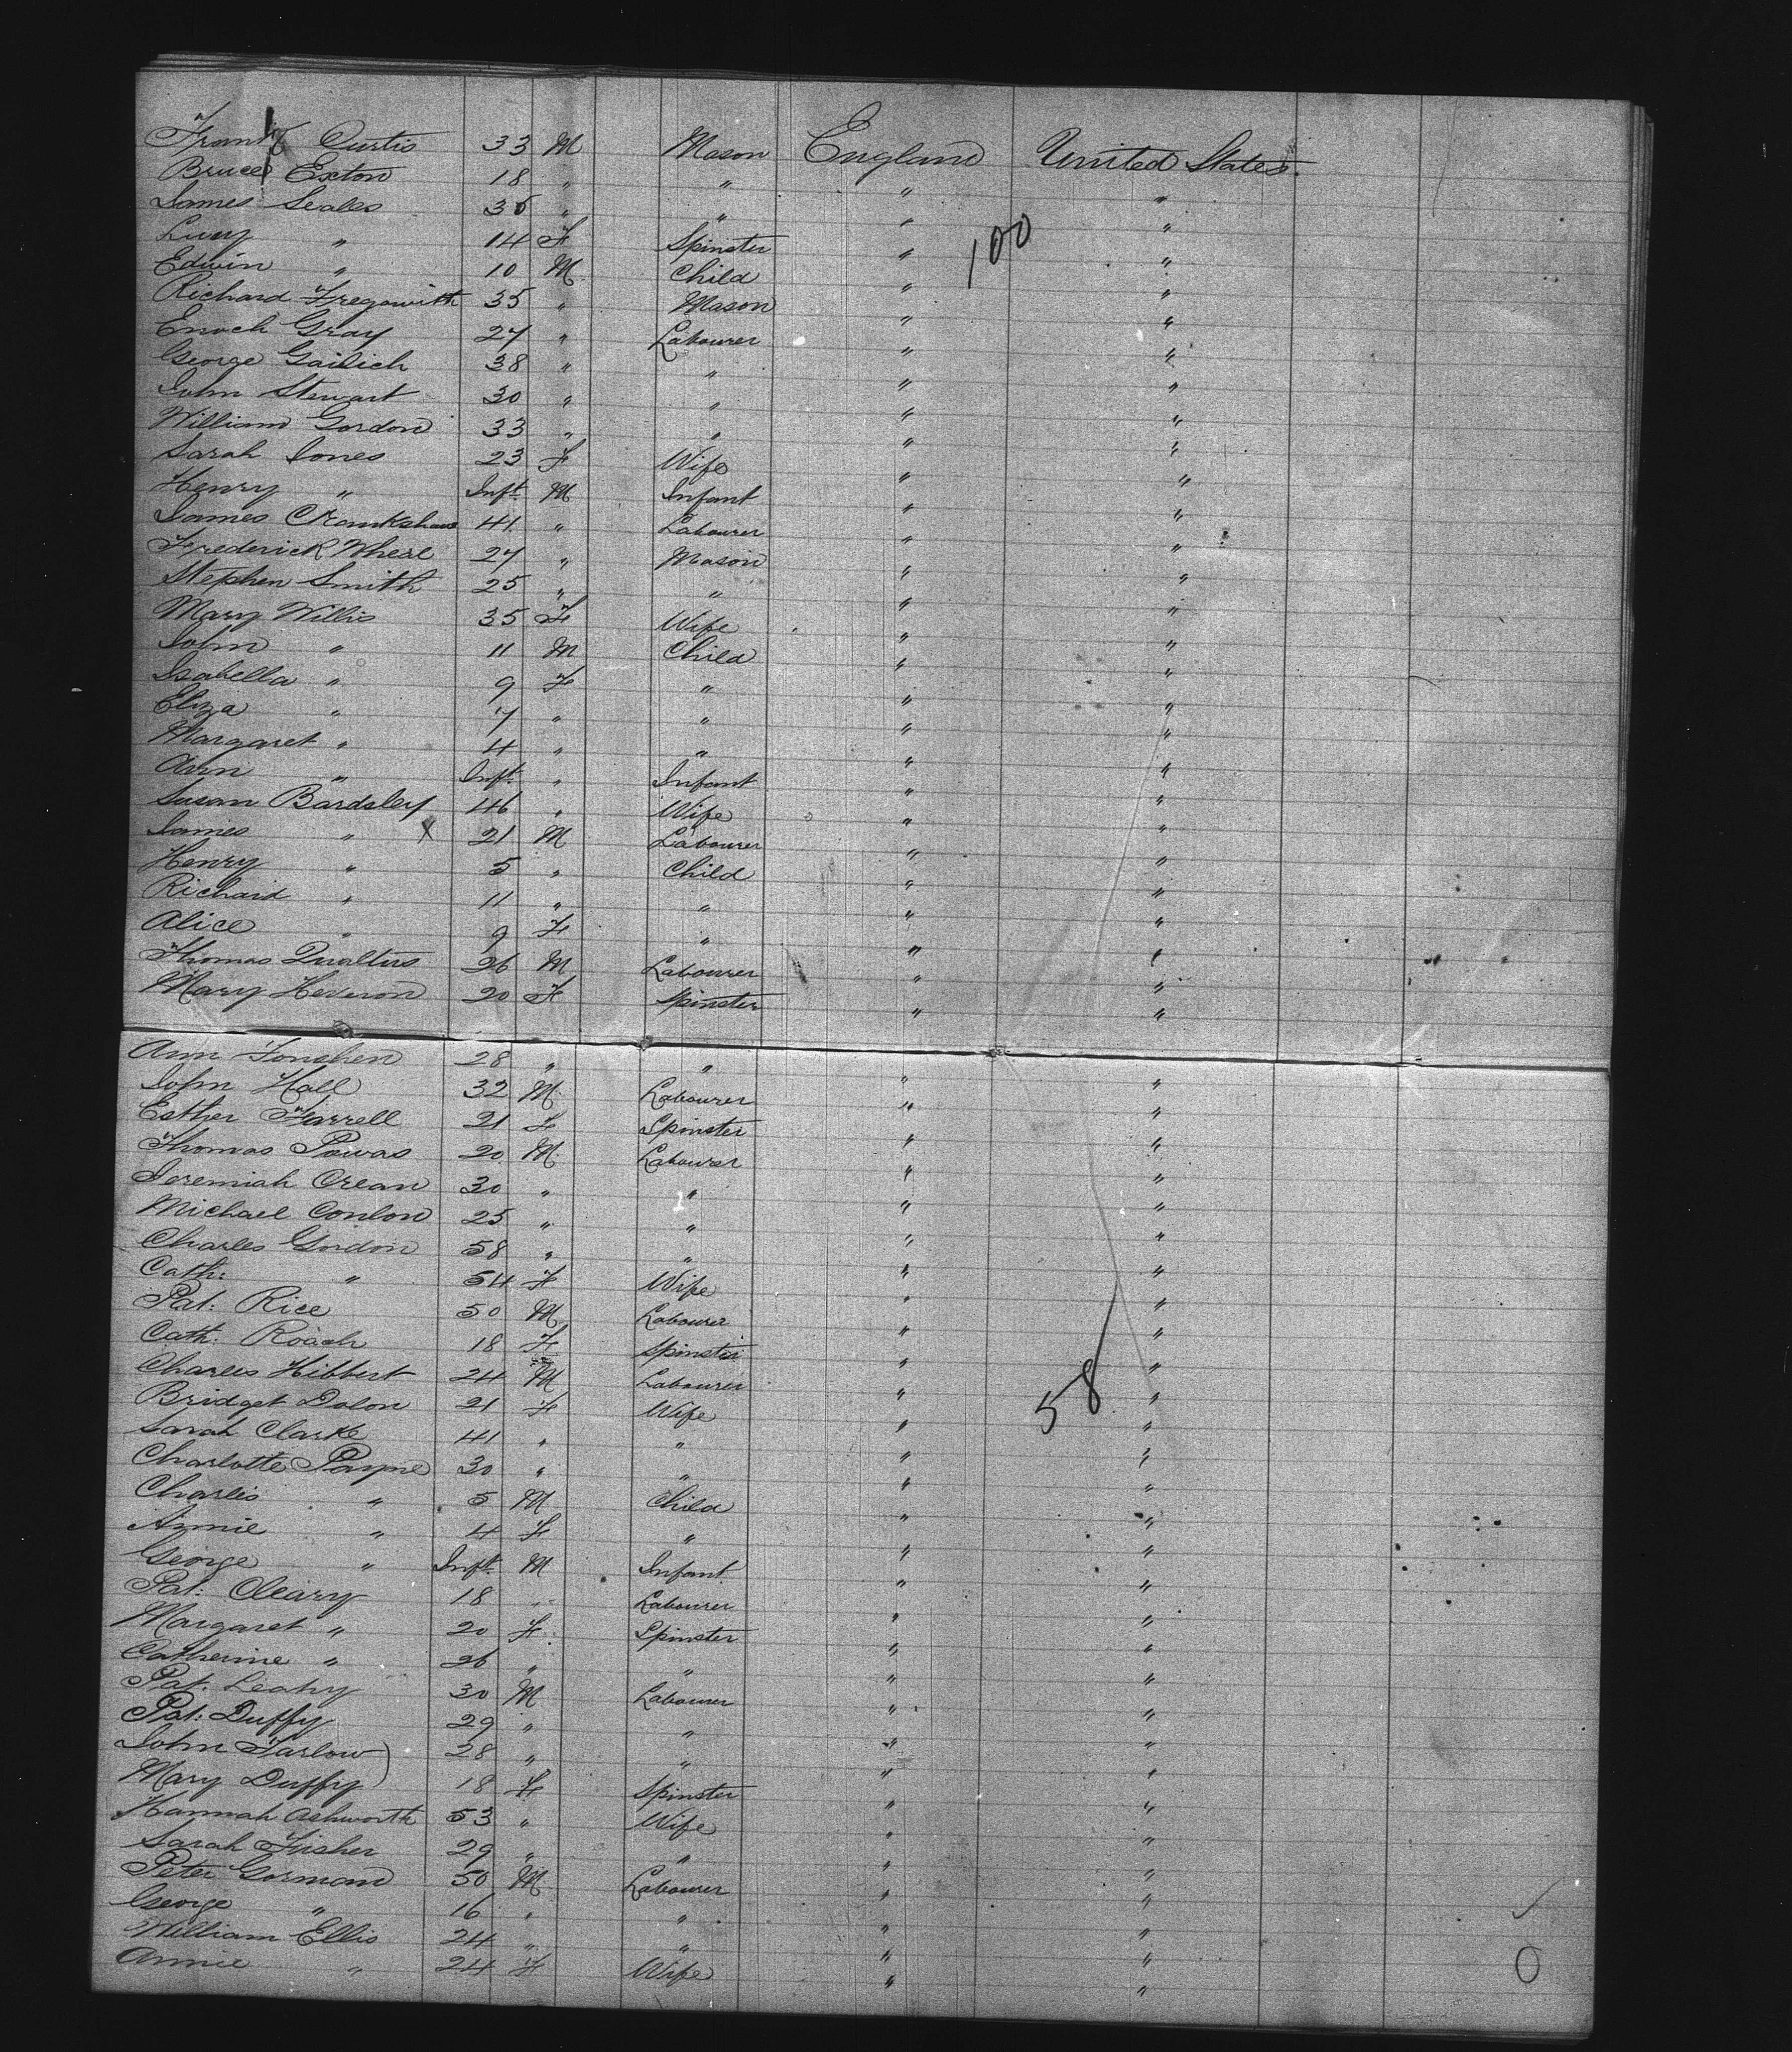 Frank Curtis 33 M Mason England United States.
Bruce Exton 18 " " " "
James Seales 36 " " " "
Lucy " 14 F Spinster " "
Edwin " 10 M Child " "
Richard 35 " Mason " "
Enoch Gray 27 " Labourer " "
George 38 " " " "
John Stewart 30 " " " "
William Gordon 33 " " " "
Sarah Jones 23 F Wife " "
Henry " Inft. M Infant " "
James Cronkshaw 41 " Labourer " "
Frederick 27 " Mason " "
Stephen Smith 25 " " " "
Mary Willis 35 F Wife " "
John " 11 M Child " "
Isabella " 9 F " " "
Eliza " 7 " " " "
Margaret " 4 " " " "
Ann " Inft. " Infant " "
Susan Bardsley 46 " Wife " "
James " X 21 M Labourer " "
Henry " 5 " Child " "
Richard " 11 " " " "
Alice " 9 F " " "
Thomas 26 M Labourer " "
Mary Heveron 20 F Spinster " "
Ann 28 " " " "
John Hall 32 M Labourer " "
Esther Farrell 21 F Spinster " "
Thomas Powas 20 M Labourer " "
Jeremiah Crean 30 " " " "
Michael Conlon 25 " " " "
Charles Gordon 58 " " " "
Cath: " 54 F Wife " "
Pat: Rice 50 M Labourer " "
Cath: Roach 18 F Spinster " "
Charles Hibbert 24 M Labourer " "
Bridget Dolon 21 F Wife " "
Sarah Clarke 41 " " " "
Charlotte Payne 30 " " " "
Charles " 5 M Child " "
Annie " 4 F " " "
George " Inft. M Infant " "
Pat: Cleary 18 " Labourer " "
Margaret " 20 F Spinster " "
Catherine " 26 " " " "
Pat: Leahy 30 M Labourer " "
Pat: Duffy 29 " " " "
John Farlow 28 " " " "
Mary Duffy 18 F Spinster " "
Hannah Ashworth 53 " Wife " "
Sarah Fisher 29 " " " "
Peter Gorman 50 M Labourer " "
George " 16 " " " "
William Ellis 24 " " " "
Annie " 24 F Wife " "
100
58
0